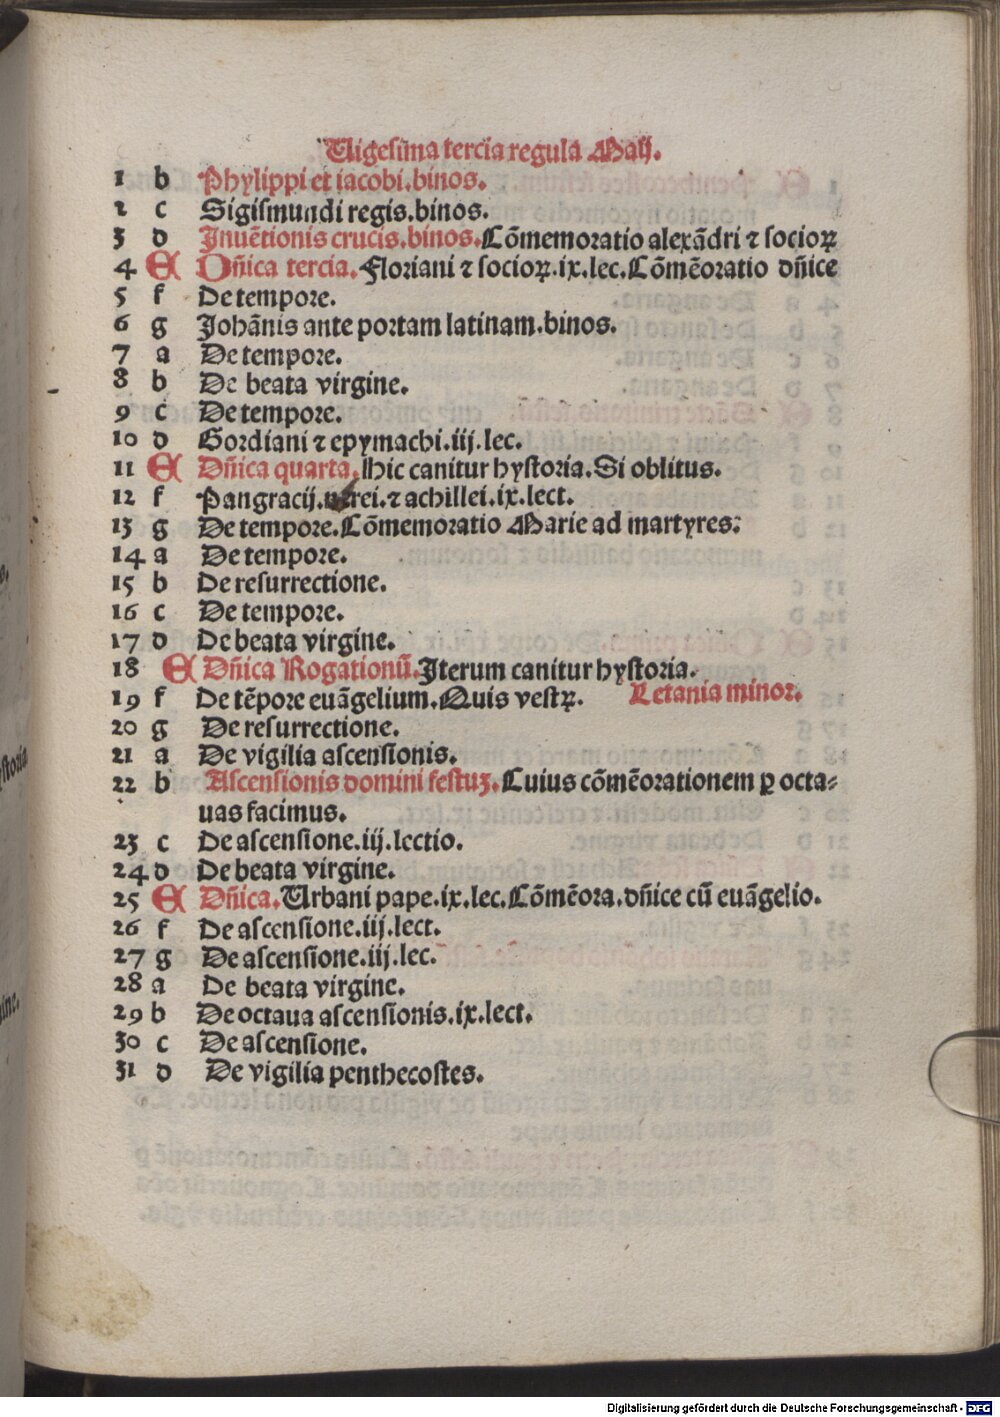 Vigesima tercia regula Maij.
1 b Phylippi et iacobi.binos.
2 c Sigismundi regis.binos.
3 d Inuētionis crucis.binos.Cōmemoratio alexādri ⁊ socioꝝ
4 E Dñica tercia.Floriani ⁊ socioꝝ.ix.lec.Cōmēoratio dñice
5 f De tempore.
6 g Johānis ante portam latinam.binos.
7 a De tempore.
8 b De beata virgine.
9 c De tempore.
10 d Gordiani ⁊ epymachi.iij.lec.
11 E Dñica quarta.Hic canitur hystoria.Si oblitus.
12 f Pangracij.nerei.⁊ achillei.ix.lect.
13 g De tempore.Cōmemoratio Marie ad martyres.
14 a De tempore.
15 b De resurrectione.
16 c De tempore.
17 d De beata virgine.
18 E Dñica Rogationū.Iterum canitur hystoria.
19 f De tēpore euāgelium.Quis vestꝝ. Letania minor.
20 g De resurrectione.
21 a De vigilia ascensionis.
22 b Ascensionis domini festuꝫ.Cuius cōmēorationem ꝑ octa-
uas facimus.
23 c De ascensione.iij.lectio.
24 d De beata virgine.
25 E Dñica.Urbani pape.ix.lec.Cōmēora.dñice cū euāgelio.
26 f De ascensione.iij.lect.
27 g De ascensione.iij.lec.
28 a De beata virgine.
29 b De octaua ascensionis.ix.lect.
30 c De ascensione.
31 d De vigilia penthecostes.
storia
ine.
Digitalisierung gefördert durch die Deutsche Forschungsgemeinschaft - DFG